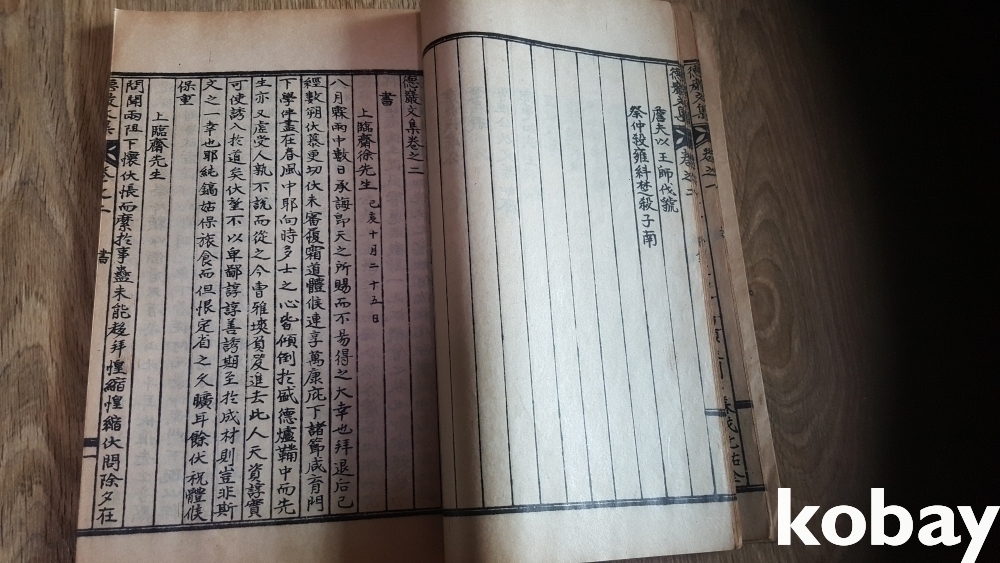 德巖文集 卷之一
德巖文集 卷之二
詹夫以王師伐虢
祭仲殺雍糾楚殺子南
德巖文集卷之二
書
上臨齋徐先生 己亥十月二十五日
八月霖雨中數日承誨卽天之所賜而不易得之大幸也拜退后已
經數朔伏慕更切伏未審復霜道體候連享萬康庇下諸節咸育門
下學伴盡在春風中耶向時多士之心皆傾倒於盛德爐鞴中而先
生亦又虛受人孰不說而從之今曺雅塽負笈進去此人天資諄實
可使誘入於道矣伏望不以卑鄙諄諄善誘期至於成材則豈非斯
文之一幸也耶純鎬姑保旅食而但恨定省之久曠耳餘伏祝體候
保重
上臨齋先生
問聞兩阻下懷伏悵而縻於事蠱未能趍拜惶縮惶縮伏問除夕在
德巖文集 卷之二 書 一
kobay